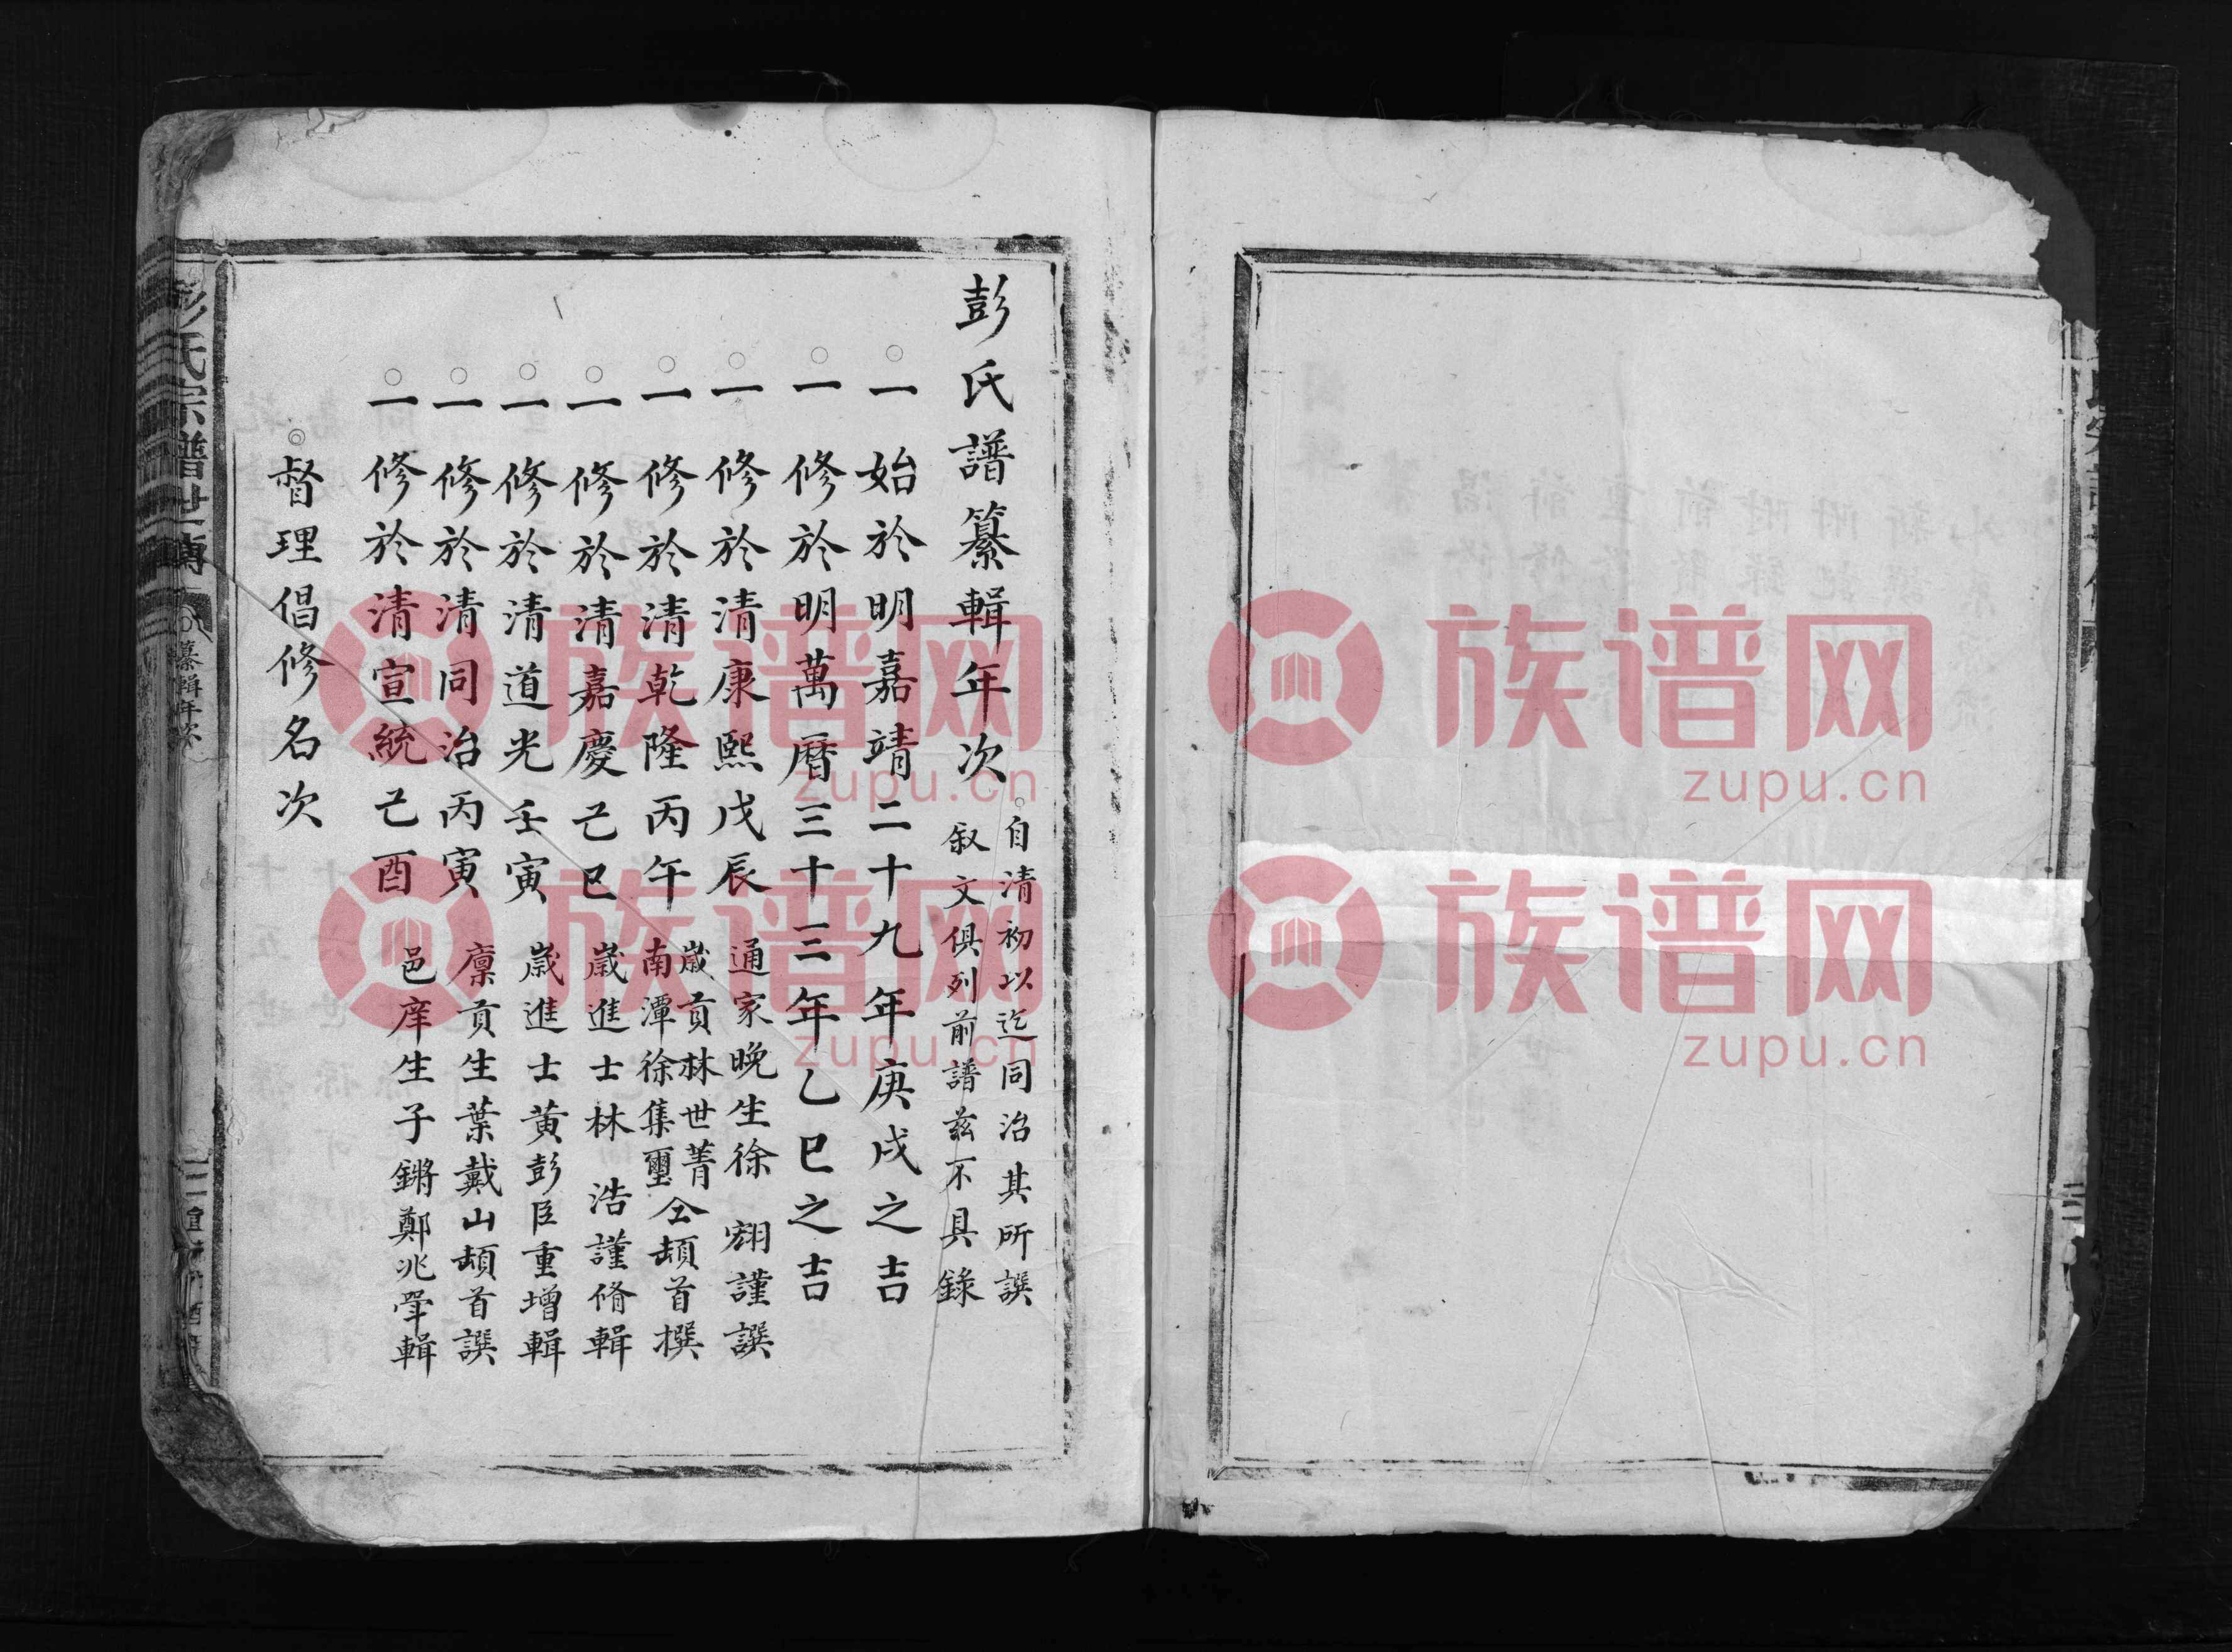 彭氏譜纂輯年次
○自清初以迄同治其所譔
叙文俱列前譜茲不具錄
○一始於明嘉靖二十九年庚戌之吉
○一修於明萬曆三十三年乙巳之吉
○一修於清康熙戊辰 通家晚生徐 翊謹譔
○一修於清乾隆丙午 歲貢林世菁 南潭徐集璽 仝頓首撰
○一修於清嘉慶己巳 歲進士林 浩謹修輯
○一修於清道光壬寅 歲進士黃彭臣重增輯
○一修於清同治丙寅 廪貢生葉戴山頓首譔
○一修於清宣統己酉 邑庠生子鏘鄭兆犖輯
◎督理倡修名次
彭氏宗譜世傳 纂輯年次
族谱网
zupu.cn
族谱网
zupu.cn
族谱网
zupu.cn
族谱网
zupu.cn